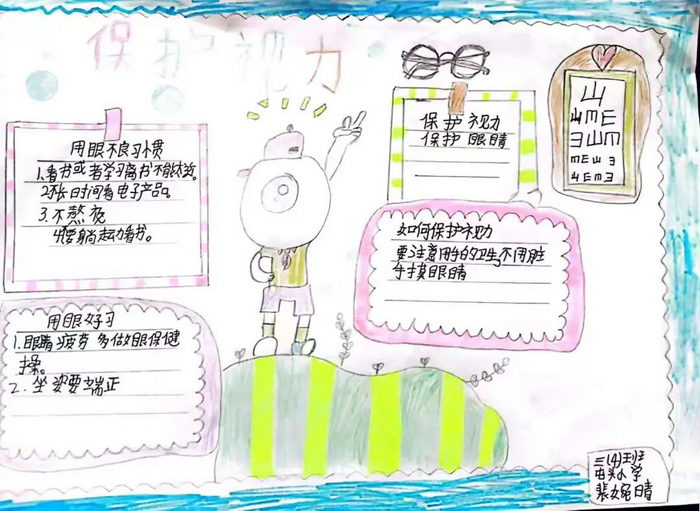 保护视力
用眼不良习惯
1.看书或者学习离书不能太近。
2.不长时间看电子产品。
3.不熬夜
4.不要躺起力看书。
用眼好习
1.眼睛疲劳 多做眼保健
操。
2.坐姿要端正
保护视力
保护眼睛
山
山mE
Eヨ山m
mE山ヨ
如何保护视力
要注意用手的卫生不用脏
手揉眼睛
三(4)班
屯头小学
裴婉晴